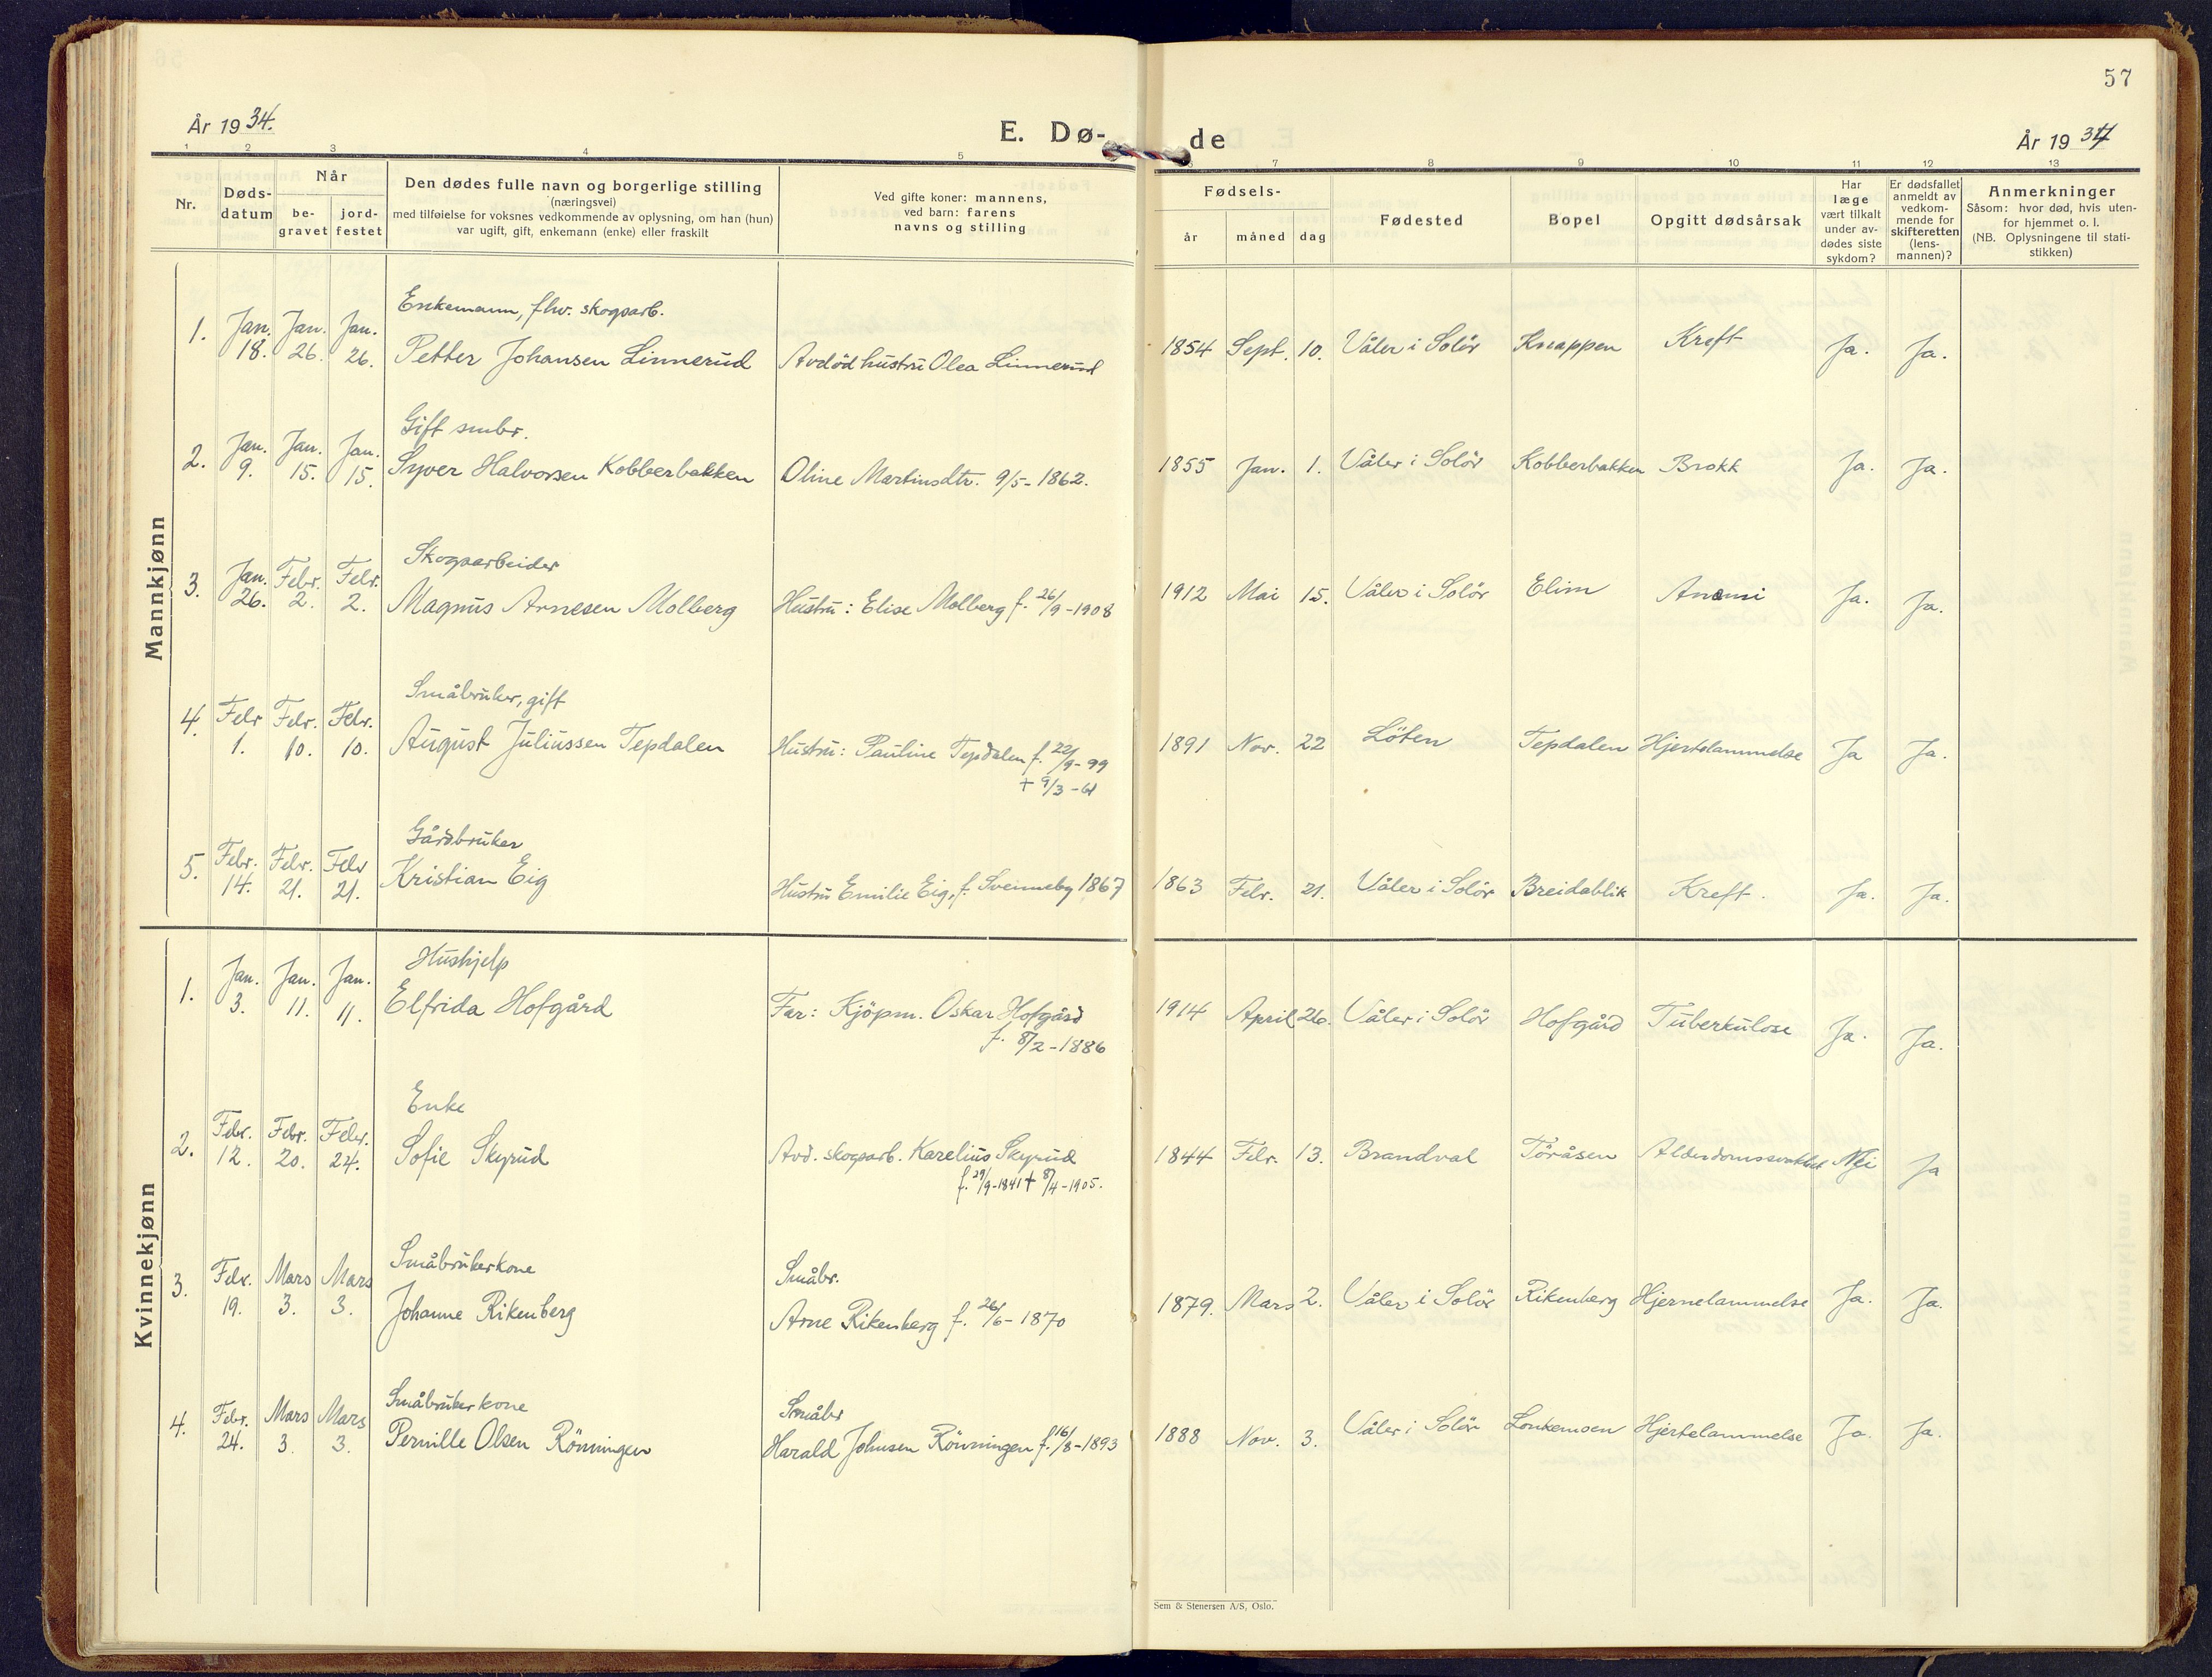 57
År 1934.
E. Dø-
de
År 1934
1 2 3 4 5 6 7 8 9 10 11 12 13
Nr.
Døds-
datum
Når
be-
gravet
jord-
festet
Den dødes fulle navn og borgerlige stilling
(næringsvei)
med tilføielse for voksnes vedkommende av oplysning, om han (hun)
var ugift, gift, enkemann (enke) eller fraskilt
Ved gifte koner: mannens,
ved barn: farens
navns og stilling
Fødsels-
år måned dag
Fødested
Bopel
Opgitt dødsårsak
Har
læge
vært tilkalt
under av-
dødes siste
sykdom?
Er dødsfallet
anmeldt av
vedkom-
mende for
skifteretten
(lens-
mannen)?
Anmerkninger
Såsom: hvor død, hvis uten-
for hjemmet o. l.
(NB. Oplysningene til stati-
stikken)
Mannkjønn
Enkemann, fhv. skogsarb.
1. Jan. 18. Jan. 26. Jan. 26. Petter Johansen Linnerud Avdöd hustru Olea Linnerud 1854 Sept. 10. Våler i Solör Knappen Kreft Ja. Ja.
Gift smbr.
2. Jan. 9. Jan. 15. Jan. 15. Syver Halvorsen Kobberbakken Oline Martinsdtr. 9/5-1862. 1855 Jan. 1. Våler i Solör Kobberbakken Brokk Ja. Ja.
Skogsarbeider
3. Jan. 26. Febr. 2. Febr. 2. Magnus Arnesen Molberg Hustru: Elise Molberg f. 26/9-1908 1912 Mai 15. Våler i Solör Elim Anemi Ja. Ja.
Småbruker, gift
4. Febr 1. Febr. 10. Febr. 10. August Juliussen Tepdalen Hustru: Pauline Tepdalen f. 22/9-99 1891 Nov. 22 Löten Tepdalen Hjertelammelse Ja Ja.
+ 9/3-61
Gårdbruker
5. Febr. 14. Febr. 21. Febr 21. Kristian Eig Hustru Emilie Eig, f. Sveinneby 1867 1863 Febr. 21. Våler i Solör Breidablik Kreft. Ja. Ja.
Kvinnekjønn
Hushjelp
1. Jan. 3. Jan. 11. Jan. 11. Elfrida Hofgård Far: Kjöpm. Oskar Hofgård 1914 April 26. Våler i Solör Hofgård Tuberkulose Ja. Ja.
f. 8/2-1886
Enke
2. Febr. 12. Febr. 20. Febr. 24. Sofie Skyrud Avd. skogsarb. Karelius Skyrud 1844 Febr. 13. Brandval Töråsen Alderdomssvakhet Nei Ja
f. 29/9-1841 + 8/4-1905.
Småbrukerkone Småbr.
3. Febr. 19. Mars 3. Mars 3. Johanne Rikenberg Arne Rikenberg f. 26/6-1870 1879. Mars 2. Våler i Solör Rikenberg Hjernelammelse Ja. Ja.
Småbrukerkone Småbr
4. Febr. 24. Mars 3. Mars 3. Pernille Olsen Rönningen Harald Johnsen Rönningen f. 16/8-1893 1888 Nov. 3. Våler i Solör Lonkemoen Hjertelammelse Ja. Ja.
Sem & Stenersen A/S, Oslo.